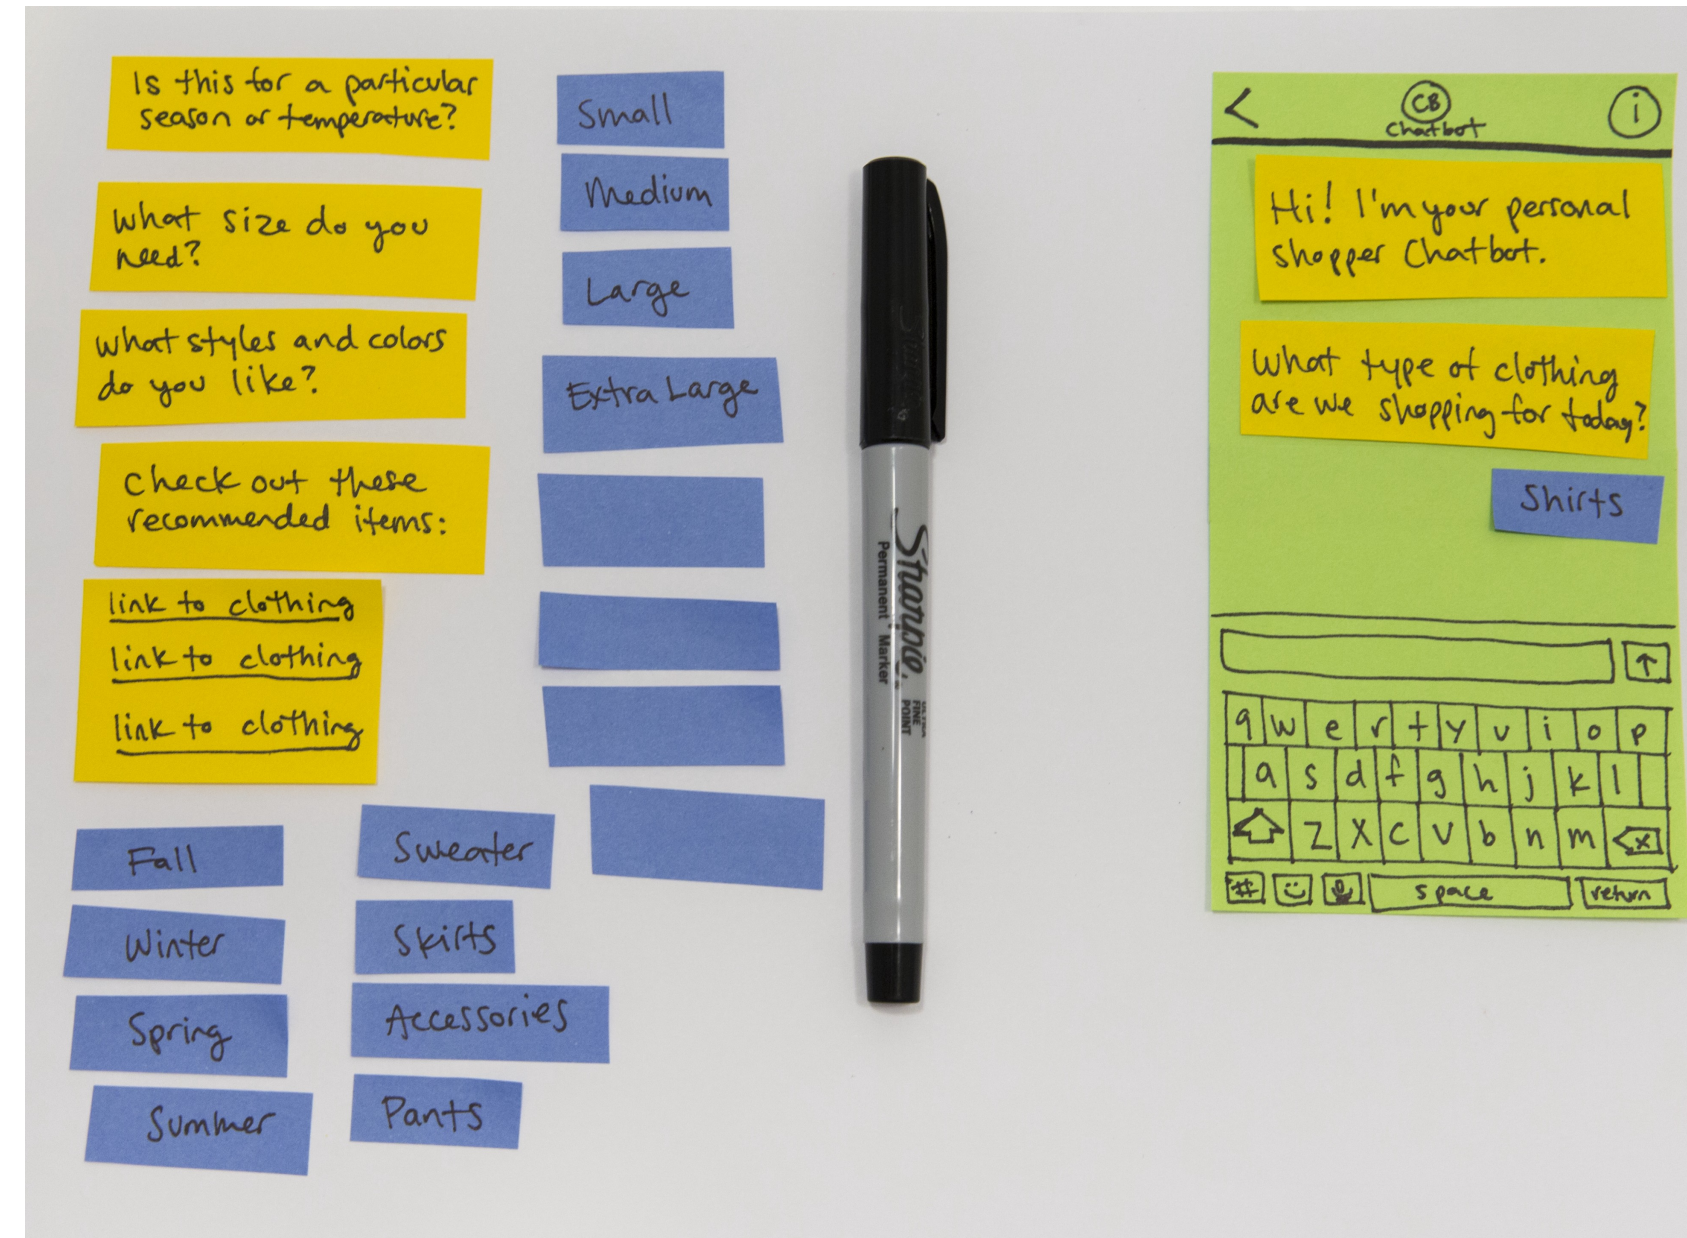 Is this for a particular
season or temperature?
What size do you
need?
What styles and colors
do you like?
Check out these
recommended items:
link to clothing
link to clothing
link to clothing
Fall
Winter
Spring
Summer
Sweater
Skirts
Accessories
Pants
Small
Medium
Large
Extra Large
Sharpie
Permanent Marker
ULTRA
FINE
POINT
<
CB
Chatbot
i
Hi! I'm your personal
shopper Chatbot.
What type of clothing
are we shopping for today?
Shirts
↑
q w e r t y u i o p
a s d f g h j k l
z x c v b n m x
# space return